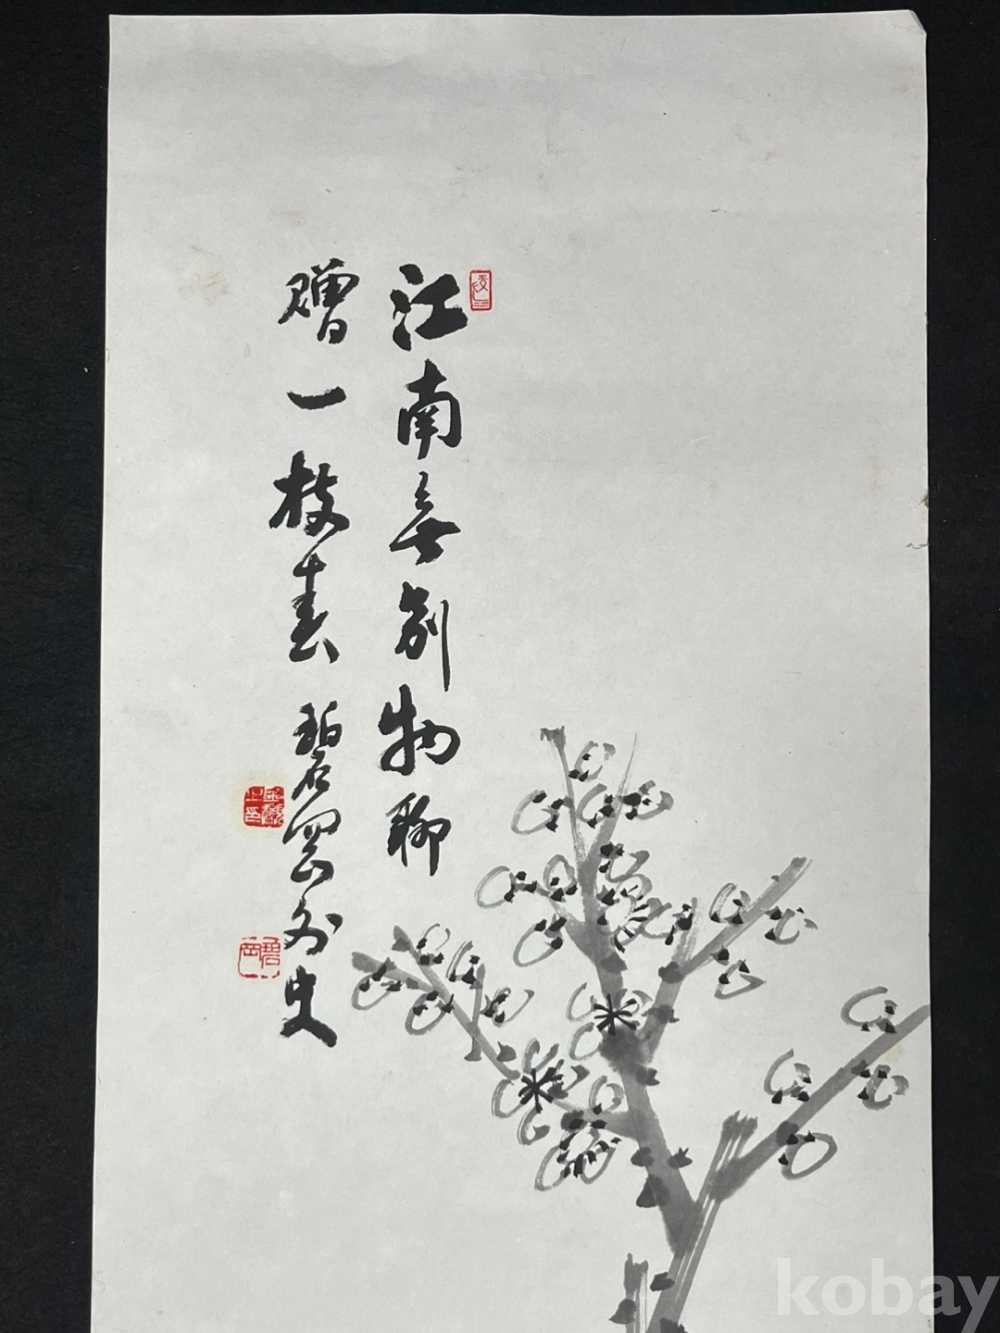 江南無別物聊
贈一枝春 碧雲外史
kobay